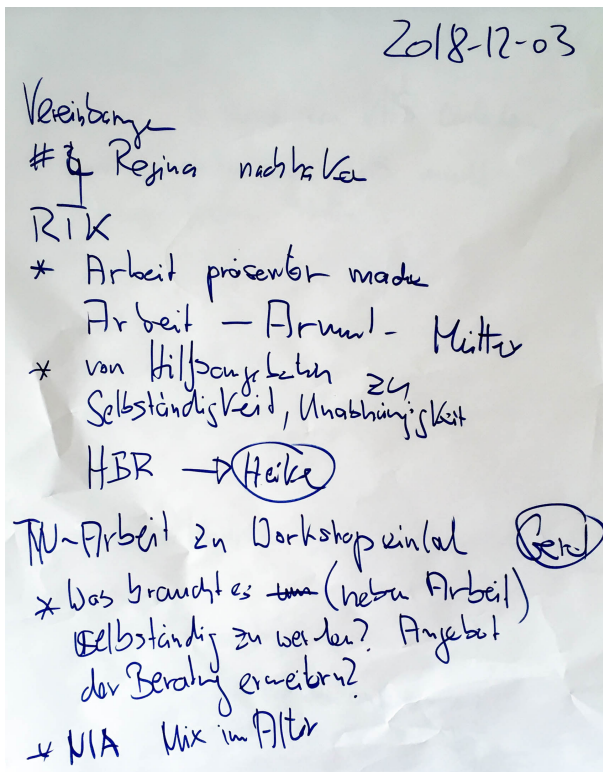 2018-12-03
Vereinbarungen
# Regina nachhaken
RTK
* Arbeit präsenter machen
Arbeit – Armut – Mütter
* von Hilfsangeboten zu
Selbständigkeit, Unabhängigkeit
HBR → Heike
TN-Arbeit zu Workshop einlad Gerd
* Was braucht es (neben Arbeit)
selbständig zu werden? Angebot
der Beratung erweitern?
* NIA Mix im Alter